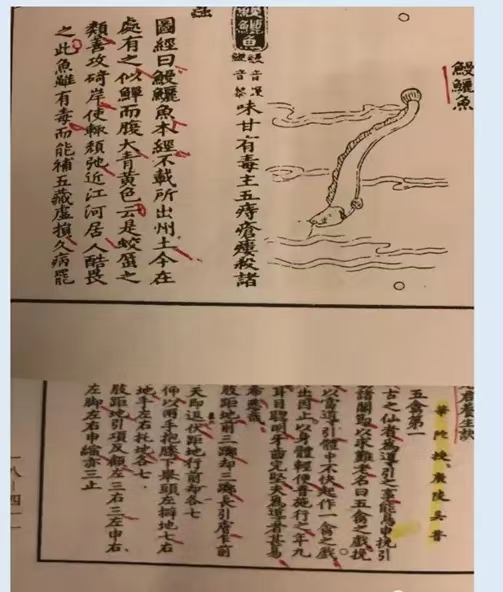 鰻鱺魚
鰻鱺魚
音漫
音黎
味甘有毒主五痔瘡瘻殺諸
蟲
圖經曰鰻鱺魚本經不載所出州土今在
處有之似鱓而腹大青黃色云是蛟蜃之
類善攻碕岸使輒頹阤近江河居人酷畏
之此魚雖有毒而能補五藏虛損久病罷
華陀授廣陵吳普
五禽第一
古之仙者為導引之事能鳥申挽引
諸關焉以求難老名曰五禽之戲挽
以當導引體中不快起作一禽之戲
出因止以身體輕便普施行之年九
耳目聰明牙齒完堅夫為導者甚易
希悉哉
肢距地前三踯却三踯長引膚乍前
天即退伏距地行前却各七
仰以兩手抱膝下舉頭左擗地七右
地手左右托地各七
肢距地引項反顧左三右三左申右
左脚左右申縮亦三止